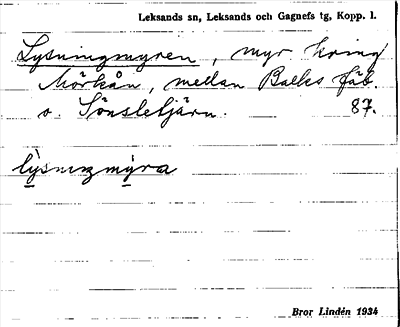 Leksands sn, Leksands och Gagnefs tg, Kopp. l.
Lysningmyren, myr kring
Mörkån, mellan Backs fäb.
o. Sönsletjärn. 87.
lỳsnıŋmỳra
Bror Lindén 1934